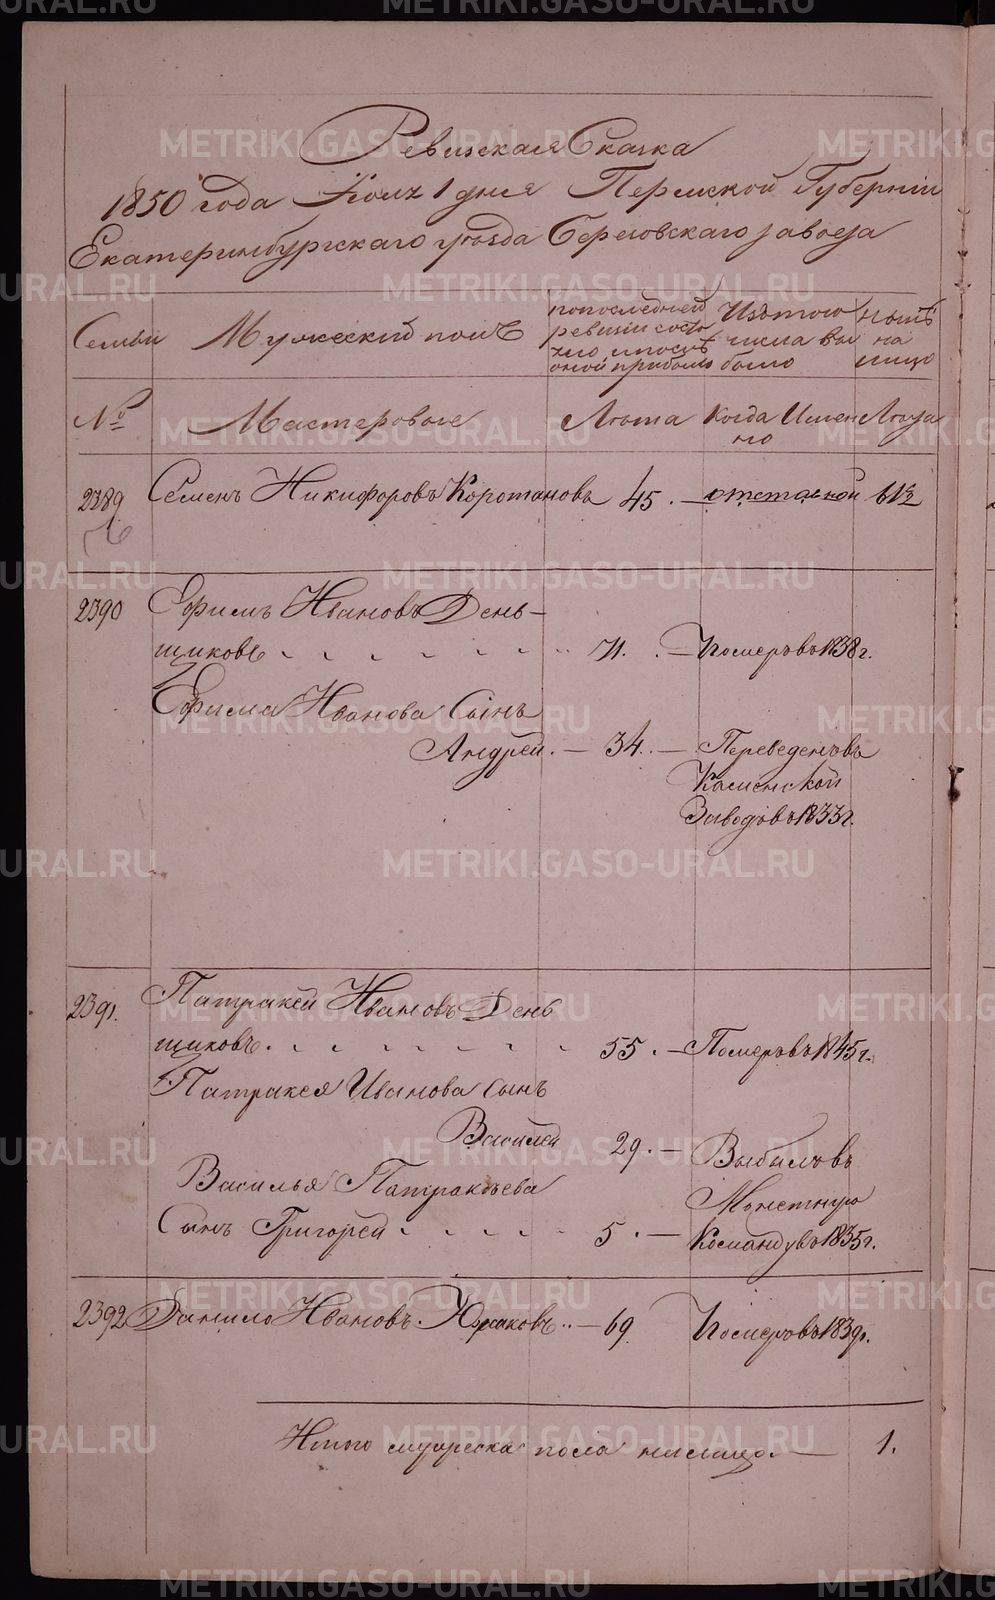 Ревизская Сказка
1850 года Июля 1 дня Пермской Губернии
Екатеринбургскаго уезда Березовскаго завода
Семьи
Мужеский полъ
по последней
ревизии состо
яло и после
оной прибыло
Изъ того
числа вы
было
Ныне
на
лицо
№
Мастеровые
Лета
Когда Имен
но
Лета
2389
Семенъ Никифоровъ Коротановъ 45. отставкой 61 1/2
2390 Ефимъ Ивановъ День-
щиковъ 71. Померъ въ 1838 г.
Ефима Иванова Сынъ
Андрей. 34. Переведенъ въ
Каменской
Заводъ въ 1833 г.
2391. Патракей Ивановъ День
щиковъ. 55. Померъ въ 1845 г.
Патракея Иванова сынъ
Василей 29. Выбылъ въ
Василья Патракъева Монетную
Сынъ Григорей 5. Команду въ 1835 г.
2392 Данило Ивановъ 69 Померъ въ 1839 г.
Итого мужеска пола налицо. 1.
METRIKI.GASO-URAL.RU